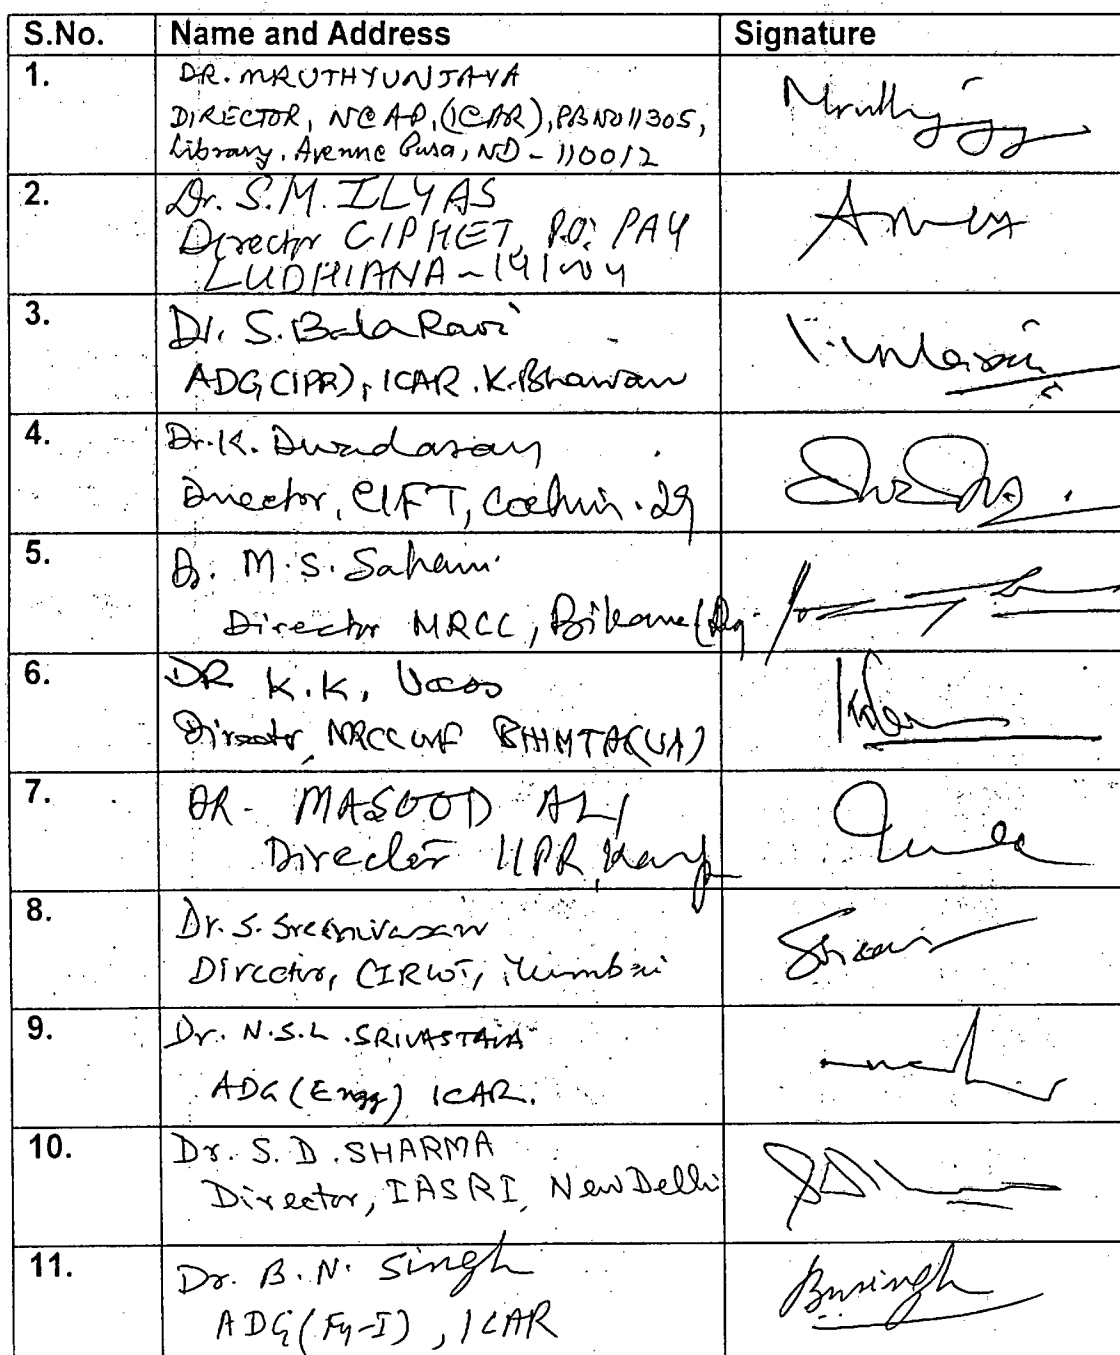 S.No. Name and Address Signature
1. DR. MRUTHYUNJAYA
DIRECTOR, NCAP, (ICAR), PBNO11305,
Library. Avenue Pusa, ND - 110012
2. Dr. S.M. ILYAS
Director CIPHET, P.O. PAU
LUDHIANA - 141004
3. Dr. S. BalaRavi
ADG(IPR), ICAR. K.Bhawan
4. Dr. K. Devadasan
Director, CIFT, Cochin. 29
5. Dr. M.S. Sahani
Director NRCC, Bikaner
6. DR K.K. Vass
Director, NRCCWF BHIMTAL(UA)
7. DR - MASOOD ALI
Director IIPR,
8. Dr. S. Sreenivasan
Director, CIRCOT, Mumbai
9. Dr. N.S.L. SRIVASTAVA
ADG (Engg) ICAR.
10. Dr. S. D. SHARMA
Director, IASRI, New Delhi
11. Dr. B. N. Singh Bnsingh
ADG(Fy-I), ICAR